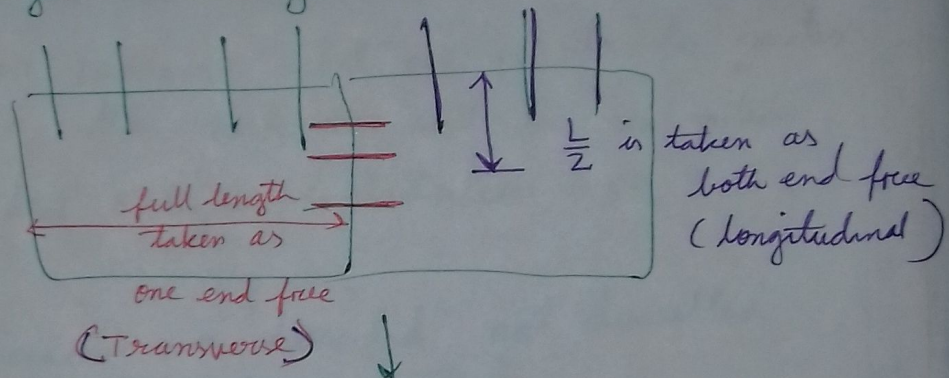 full length
taken as
one end free
(Transverse)
L/2 is taken as
both end free
(Longitudinal)